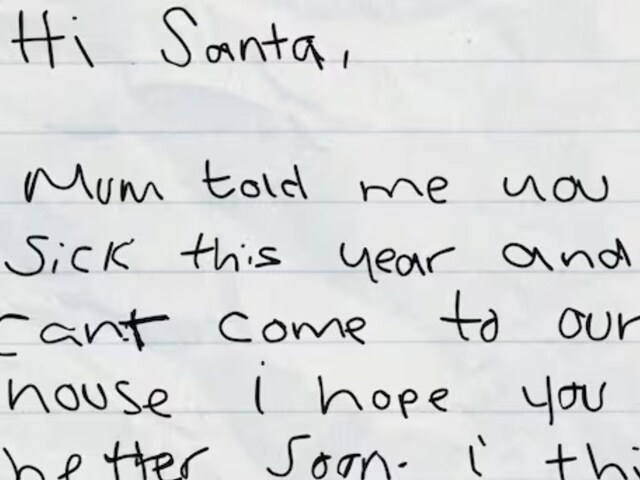 Hi Santa,
Mum told me you
Sick this year and
cant come to our
house i hope you
better soon. i thi